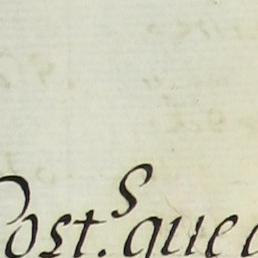 Post.s que